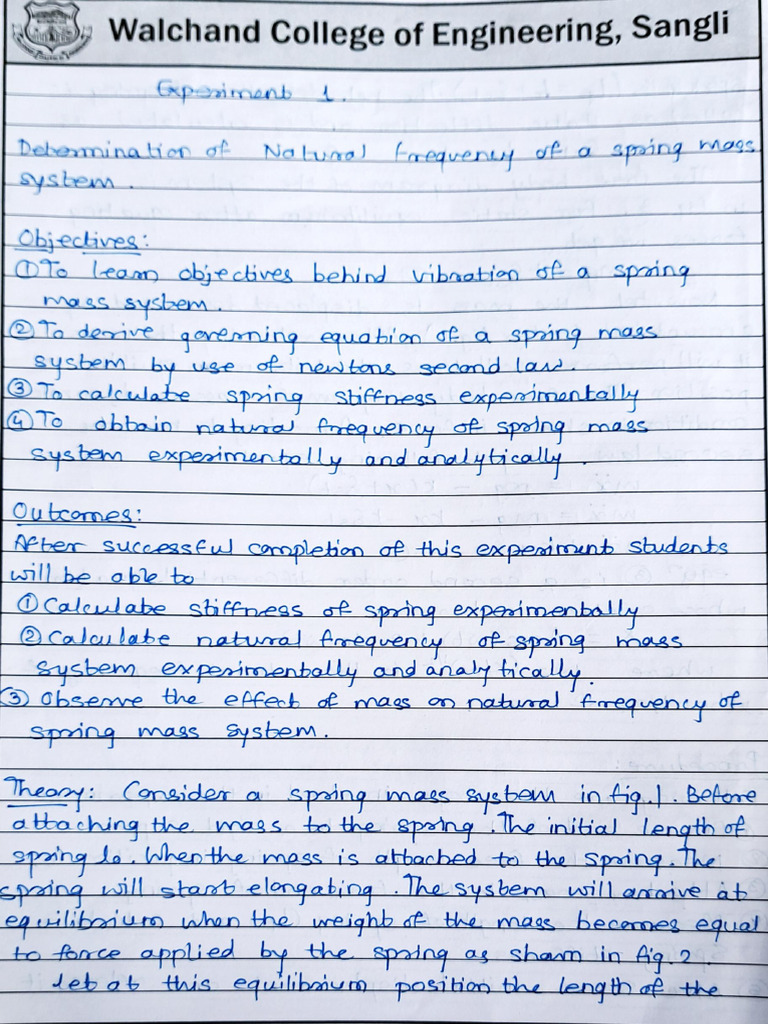 Walchand College of Engineering, Sangli
Experiment 1.
Determination of Natural frequency of a spring mass
system.
Objectives:
① To learn objectives behind vibration of a spring
mass system.
② To derive governing equation of a spring mass
system by use of newtons second law.
③ To calculate spring stiffness experimentally
④ To obtain natural frequency of spring mass
system experimentally and analytically.
Outcomes:
After successful completion of this experiment students
will be able to
① Calculate stiffness of spring experimentally
② Calculate natural frequency of spring mass
system experimentally and analytically.
③ Observe the effect of mass on natural frequency of
spring mass system.
Theory: Consider a spring mass system in fig.1. Before
attaching the mass to the spring. The initial length of
spring lo. When the mass is attached to the spring. The
spring will start elongating. The system will arrive at
equilibrium when the weight of the mass becomes equal
to force applied by the spring as shown in fig.2
let at this equilibrium position the length of the